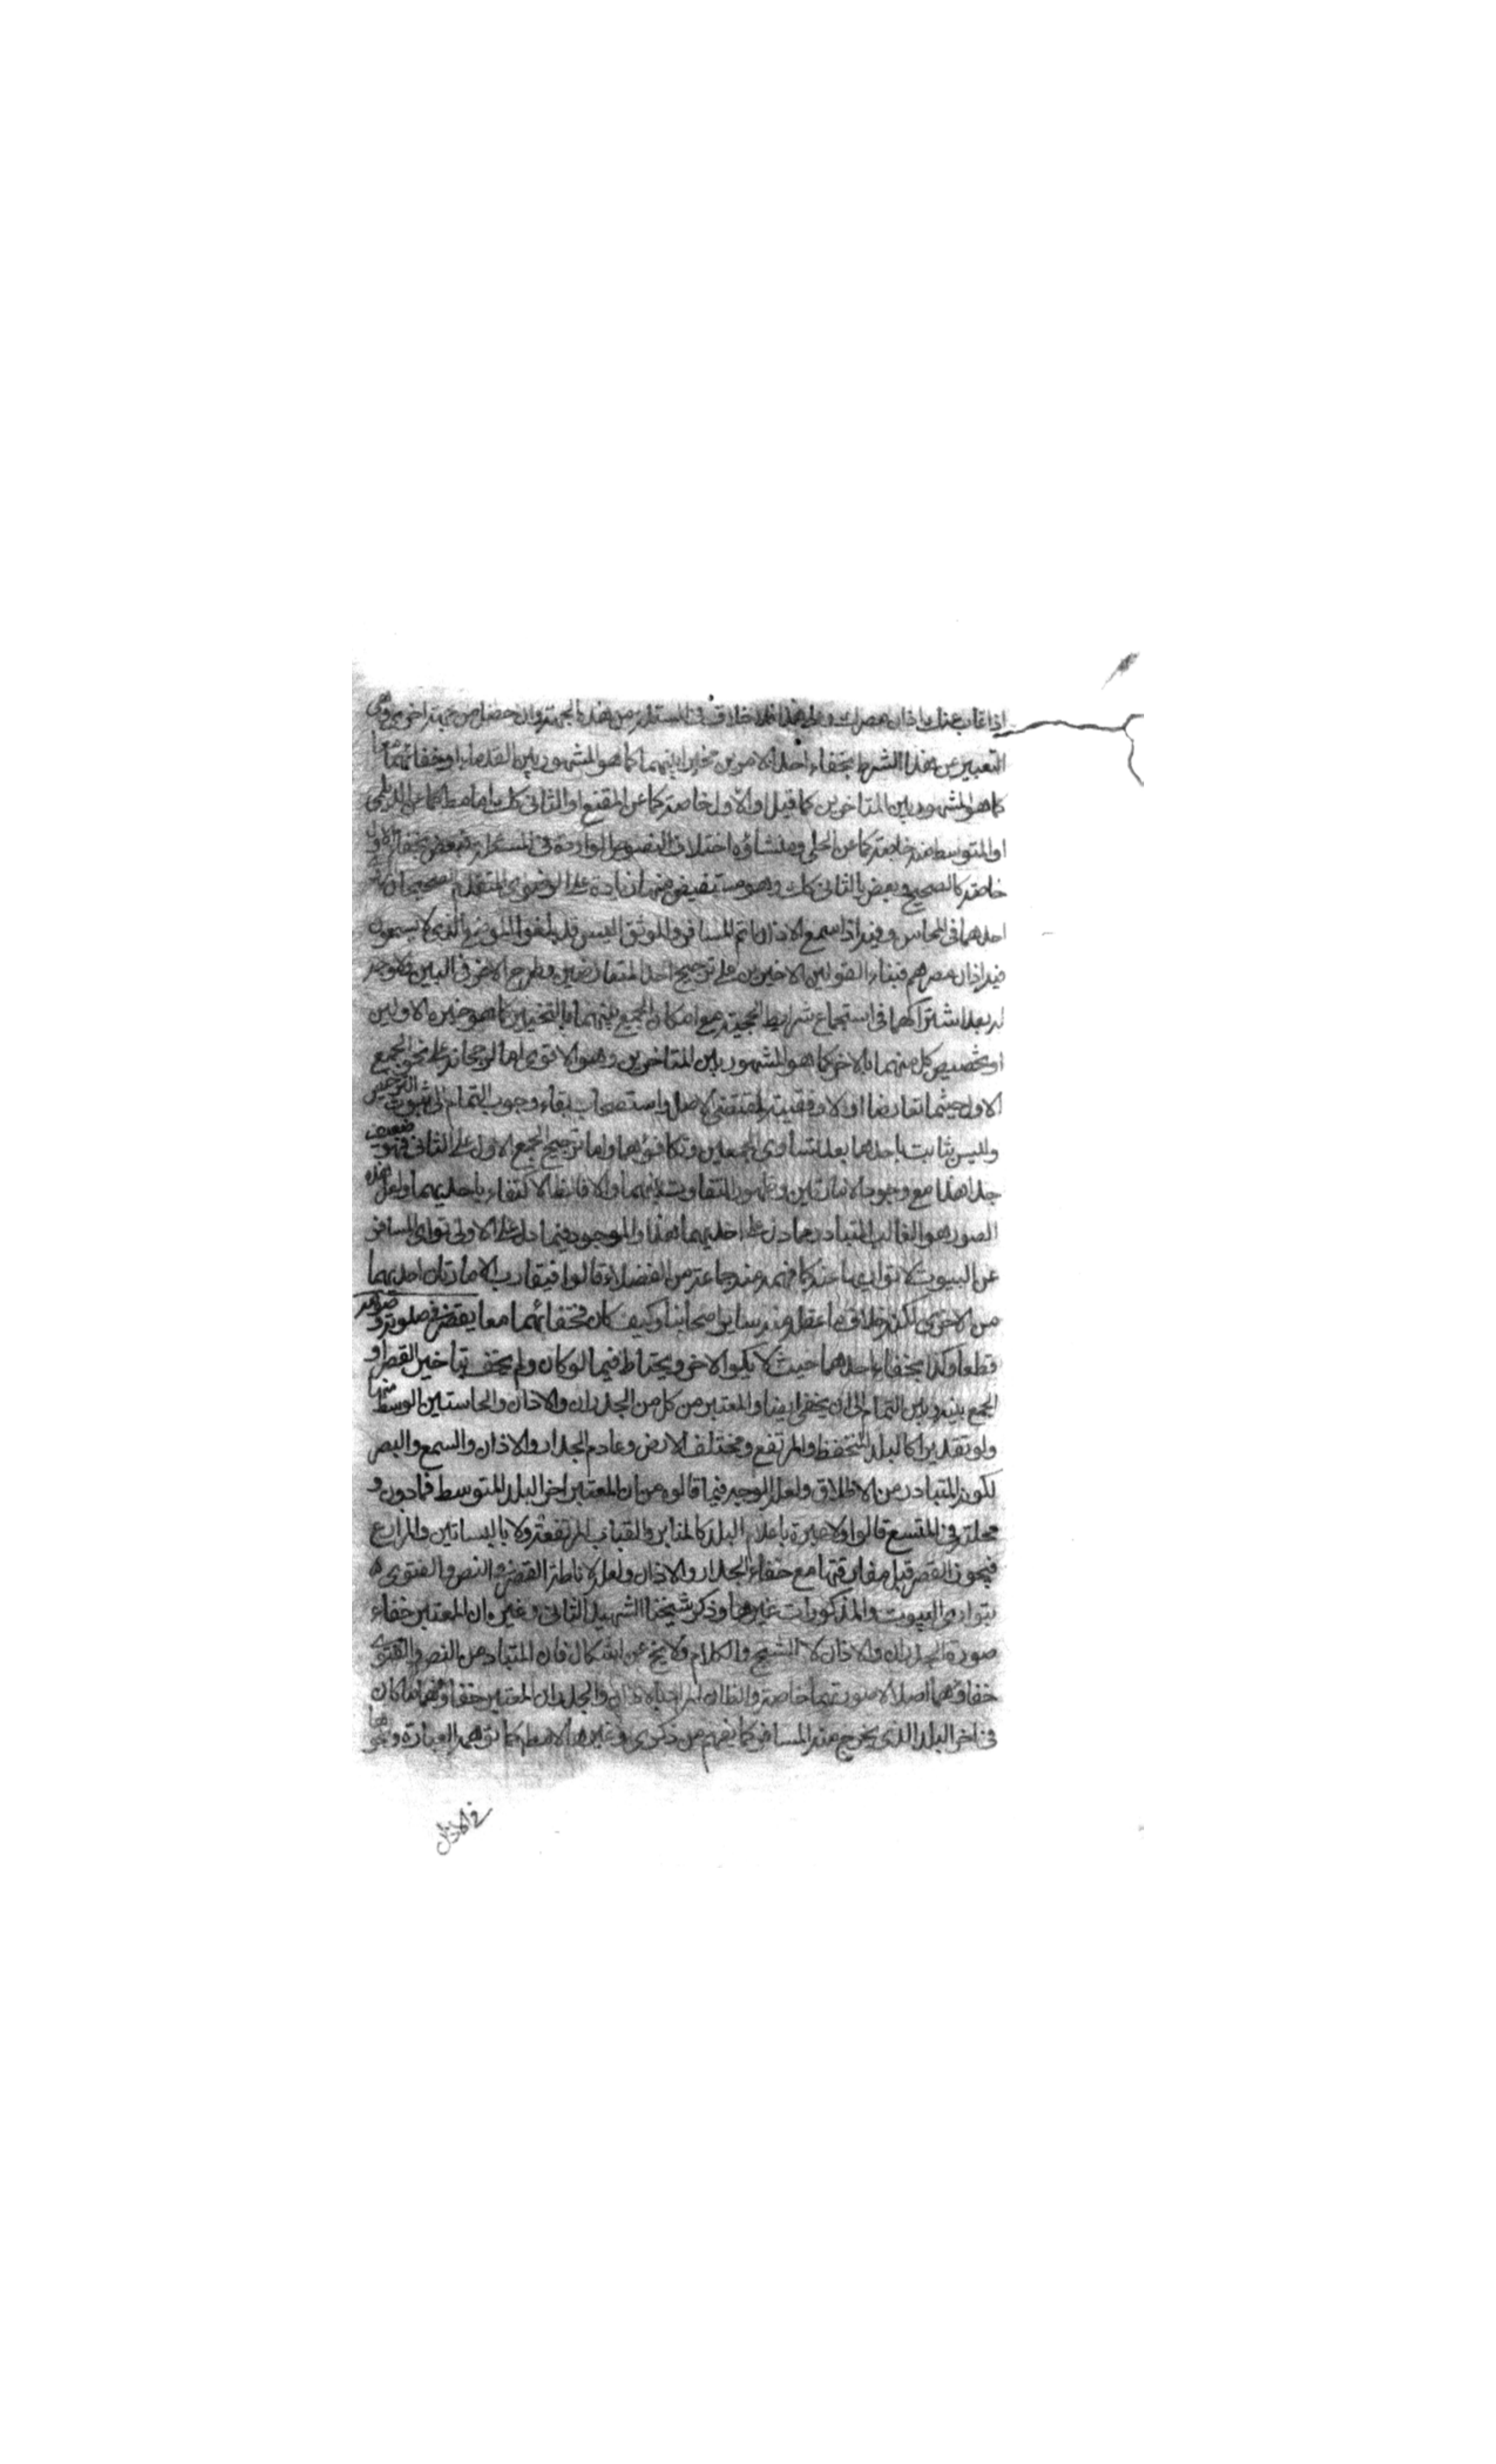 اذا غاب عنك اذان مصرك وعلى هذا فلا خلاف في المسئلة من هذه الجهة وان حصل من جهة اخرى وهى
التعبير عن هذا الشرط بخفاء احد الامرين مخيرا بينهما كما هو المشهور بين القدماء او خفائهما معا
كما هو المشهور بين المتاخرين كما قيل او الاول خاصة كما عن المقنع او الثانى كك اما مط كما عن الديلمى
او المتوسط منه خاصة كما عن الحلى ومنشاؤه اختلاف النصوص الواردة في المسئلة فبعض بخفاء الاول
خاصة كالصحيح وبعض بالثانى كك وهو مستفيض منها زيادة على الرضوى المتقدم الصحيحان
احدهما في المحاسن وفيه اذا سمع الاذان اتم المسافر والموثق اليس قد بلغوا الموضع الذى لا يسمعون
فيه اذان مصرهم فبناء القولين الاخيرين على ترجيح احد المتعارضين وطرح الاخر في البين ولا وجه
له بعد اشتراكهما في استجماع شرايط الحجية مع امكان الجمع بينهما بالتخيير كما هو خيرة الاولين
او بتخصيص كل منهما بالاخر كما هو المشهور بين المتاخرين وهو الاقوى اما لرجحانه على نحو الجمع
الاول حيثما تعارضا او لاوفقيته لمقتضى الاصل واستصحاب بقاء وجوب التمام الى ثبوت الترخيص
وليس بثابت باحدهما بعد تساوى الجمعين وتكافؤهما واما ترجيح الجمع الاول على الثانى فهو ضعيف
جدا هذا مع وجود الامارتين وظهور التفاوت بينهما والا فالظ الاكتفاء باحديهما ولعل هذه
الصورة هو الغالب المتبادر مما دل على احديهما هذا والموجود فيما دل على الاولى توارى المسافر
عن البيوت لا تواريها عنه كما فهمه منه جماعة من الفضلاء قالوا فيتقارب الامارتان احديهما
من الاخرى لكنه خلاف ما عقله منه ساير اصحابنا وكيف كان فبخفائهما معا يقصر في صلوته وصومه
قطعا وكذا بخفاء احدهما حيث لا يكون الاخر ويحتاط فيما لو كان ولم يخف بتاخير القصر او
الجمع بينه وبين التمام الى ان يخفى ايضا والمعتبر من كل من الجدران والاذان والحاستين الوسط منها
ولو تقديرا كالبلد المنخفظ والمرتفع ومختلف الارض وعادم الجدار والاذان والسمع والبصر
لكونه المتبادر من الاطلاق ولعله الوجه فيما قالوه من ان المعتبر اخر البلد المتوسط فمادون و
محلته في المتسع قالوا ولا عبرة باعلام البلد كالمنابر والقباب المرتفعة ولا بالبساتين والمزارع
فيجوز القصر قبل مفارقتها مع خفاء الجدار والاذان ولعله لاناطة القصر في النص والفتوى
بتوارى البيوت والمذكورات غيرها وذكر شيخنا الشهيد الثانى وغيره ان المعتبر خفاء
صورة الجدران والاذان لا الشبح والكلام ولا يخ عن اشكال فان المتبادر من النص والفتوى
خفاؤهما اصلا لا صورتهما خاصة والظاهر ان المراد بالاذان والجدران المعتبر خفاؤهما ما كان
في اخر البلد الذى يخرج منه المسافر كما يفهم من ذكرى وغيرها لا مطلقا كما توهمه العبارة ونحوها
في الاذان